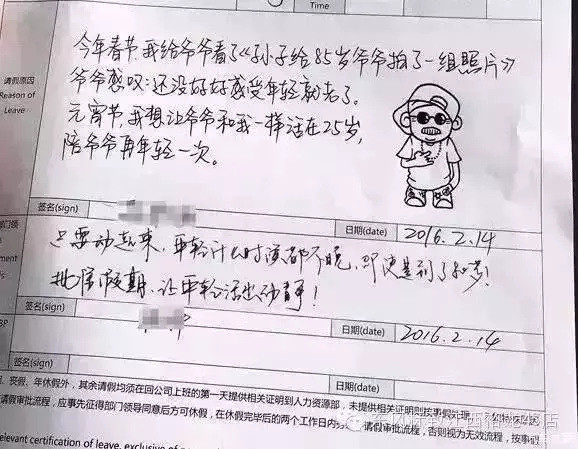 Time
今年春节,我给爷爷看了《孙子给85岁爷爷拍了一组照片》
请假原因
爷爷感叹:还没好好感受年轻就老了。
Reason of
Leave
元宵节,我想让爷爷和我一样活在25岁,
陪爷爷再年轻一次。
签名(sign)
日期(date)
2016.2.14
部门领
只要动起来,年轻什么时候都不晚,即使是到了80岁!
ment
批准假期,让年轻活出动静!
签名(sign)
日期(date)
2016.2.14
BP
签名(sign)
日期(date)
、丧假、年休假外,其余请假均须在回公司上班的第一天提供相关证明到人力资源部,未提供相关证明则按事假处理
请假审批流程,应事先征得部门领导同意后方可休假,在休假完毕后的两个工作日内
请假审批流程,否则视为无效流程,按事
elevant certification of leave, exclusive of